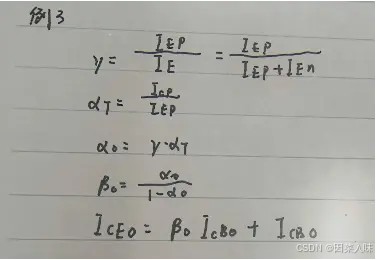 例3
γ = I_EP / I_E = I_EP / (I_EP + I_En)
α_T = I_CP / I_EP
α_0 = γ·α_T
β_0 = α_0 / (1-α_0)
I_CEO = β_0 I_CBO + I_CBO
CSDN @因菜入味